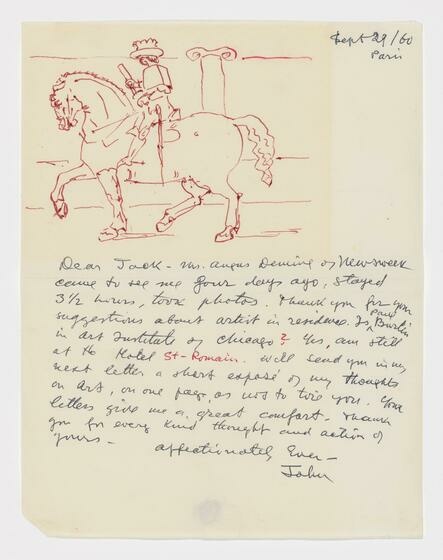 Sept 29/60
Paris
Dear Jack - Mr. Angus Deming of Newsweek
came to see me four days ago, stayed
3½ hours, took photos. Thank you for your
suggestions about artist in residence. Is Paul Burlin
in Art Institute of Chicago? Yes, am still
at the Hotel St-Romain. Will send you in my
next letter a short exposé of my thoughts
on Art, on one page, as not to tire you. Your
letters give me a great comfort. Thank
you for every kind thought and action of
yours -
affectionately Ever -
John